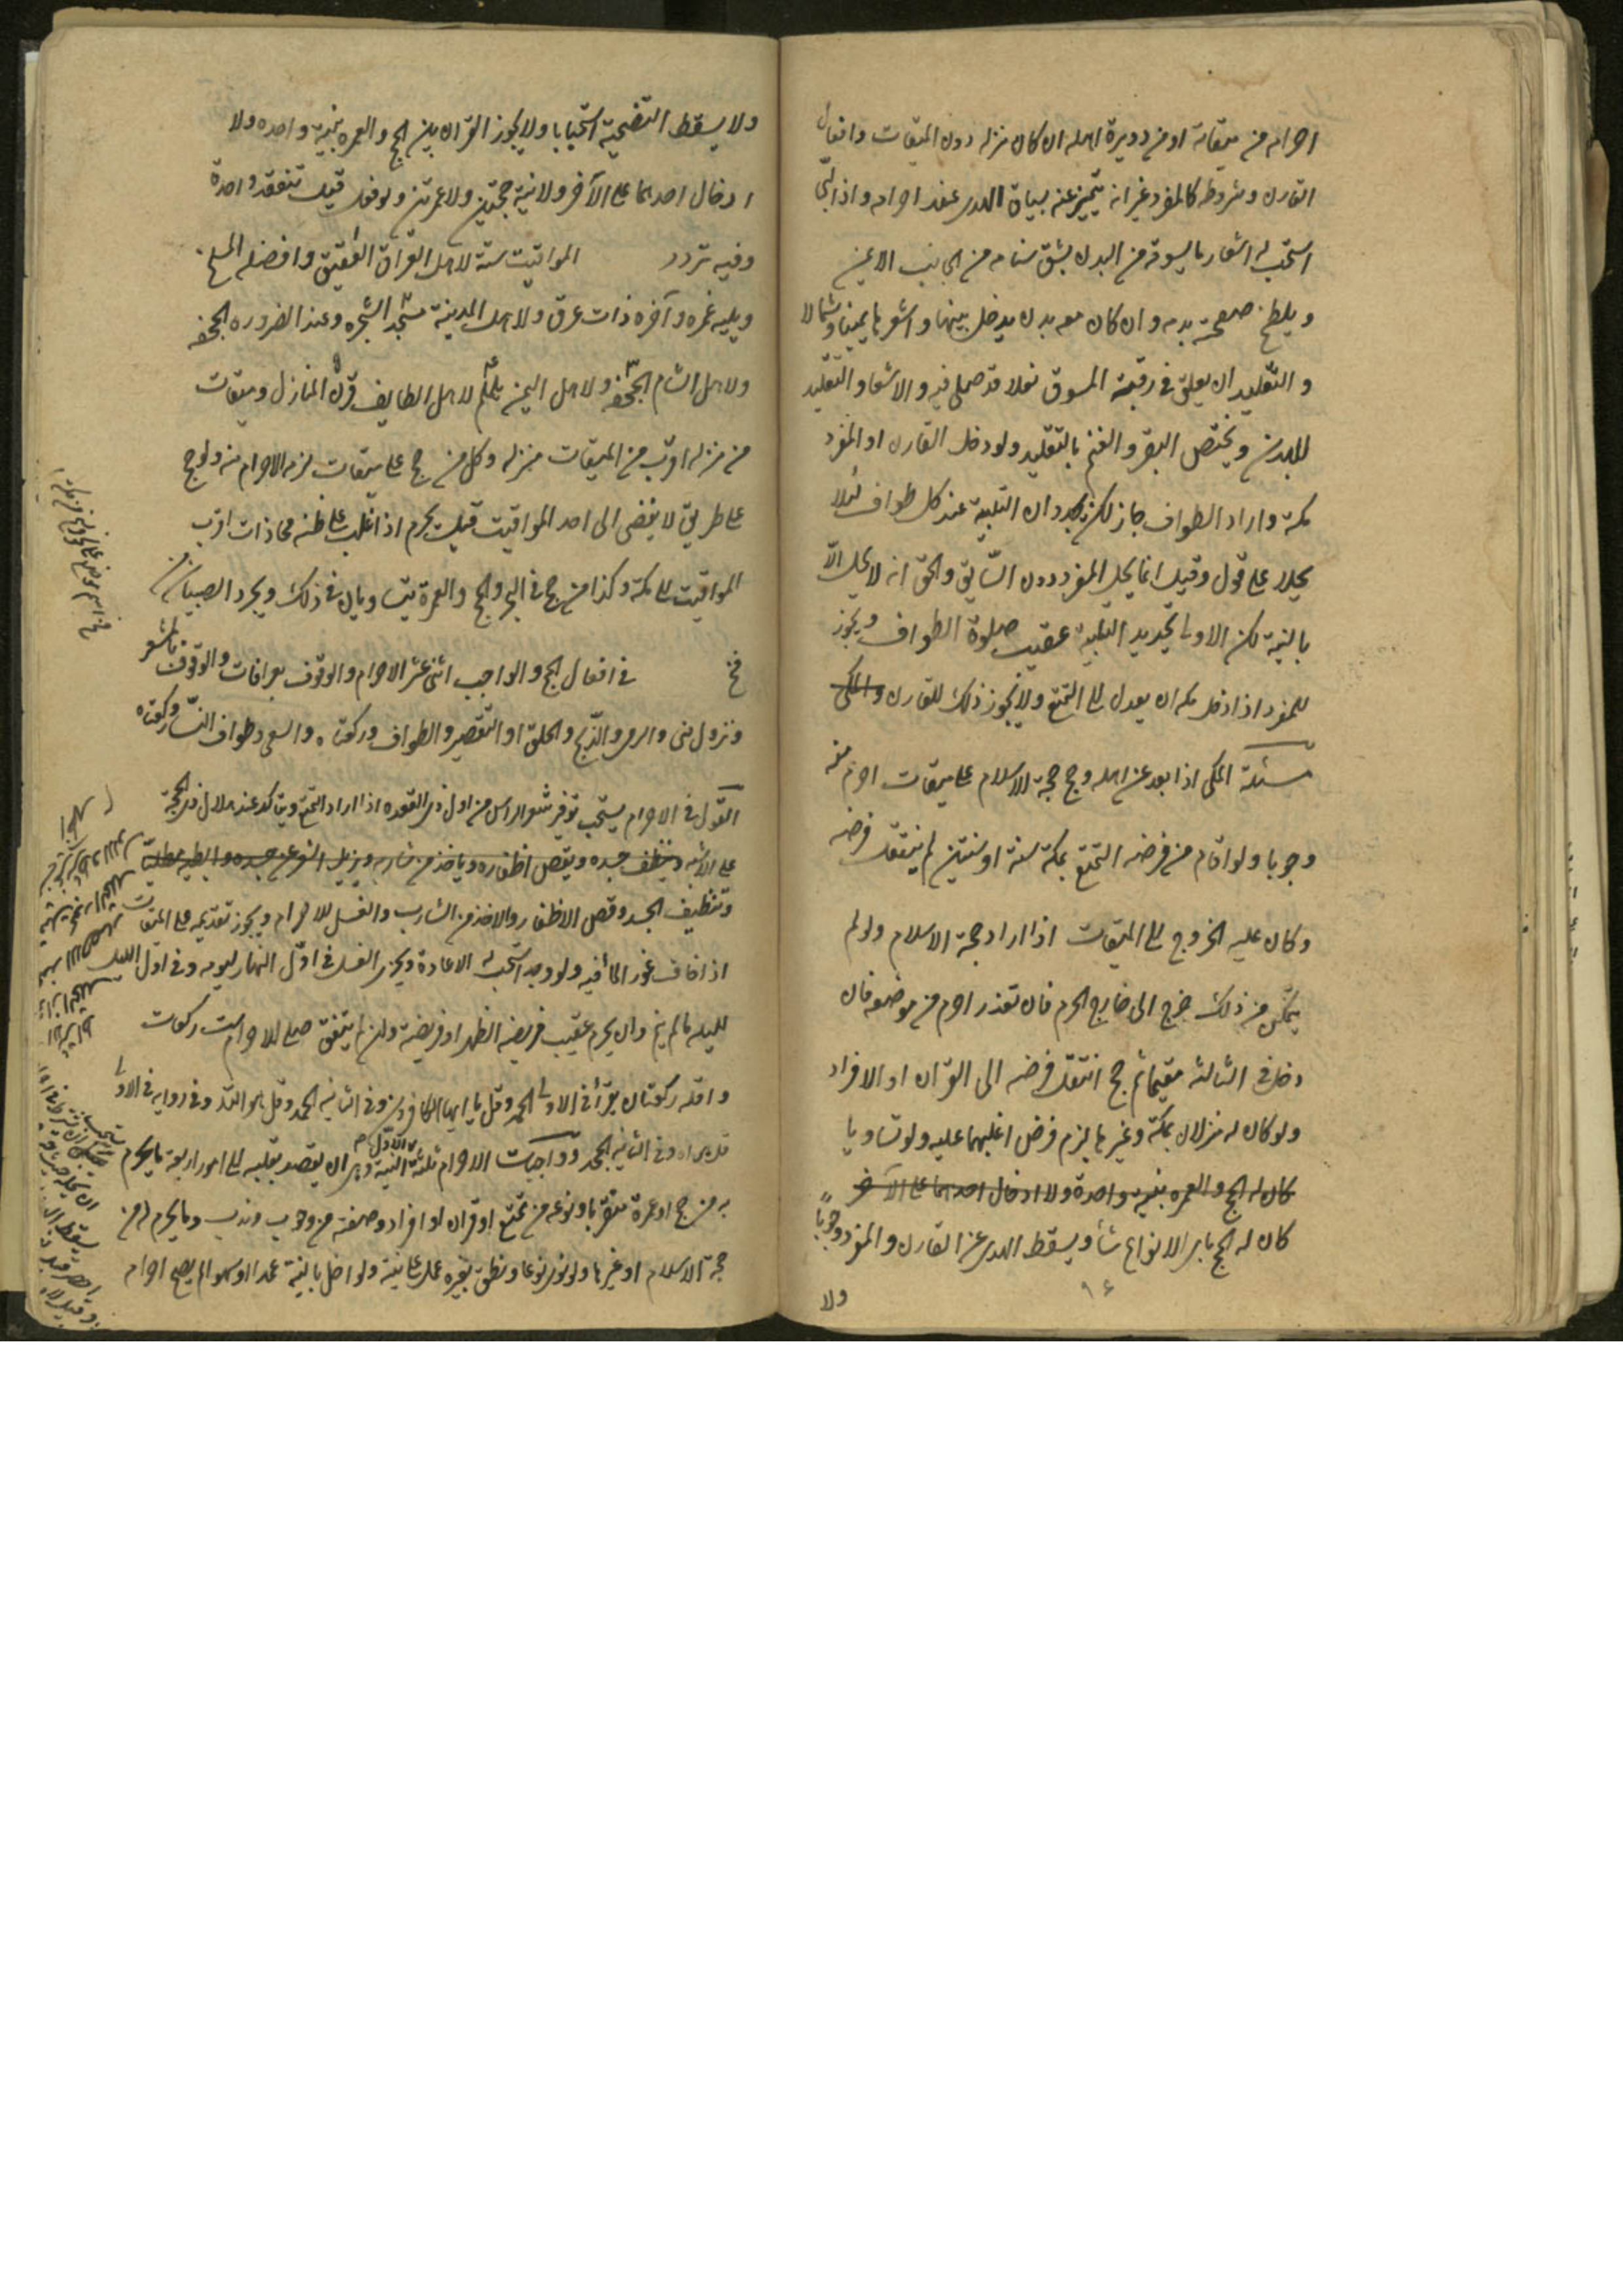 احرامه من ميقاته او من دويرة اهله ان كان منزله دون الميقات وافعال
القارن وشروطه كالمفرد غير انه يتميز عنه بسياق الهدى عند احرامه واذا لبّى
استحب له اشعار ما يسوقه من البدن بشق سنامه من الجانب الايمن
ويلطخ صفحته بدمه وان كان معه بدن يدخل بينها واشعرها يمينا وشمالا
والتقليد ان يعلق فى رقبة المسوق نعلا قد صلى فيه والاشعار والتقليد
للبدن ويختص البقر والغنم بالتقليد ولو دخل القارن او المفرد
مكة واراد الطواف جاز لكن يجددان التلبية عند كل طواف لئلا
يحلا على قول وقيل انما يحل المفرد دون السّائق والحق انه لا يحل الّا
بالنية لكن الاولى تجديد التلبية عقيب صلوة الطواف ويجوز
للمفرد اذا دخل مكه ان يعدل الى التمتع ولا يجوز ذلك للقارن والمكى
مسئلة المكى اذا بعد عن اهله وحج حجة الاسلام على ميقات احرم منه
وجوبا ولو اقام من فرضه التمتع بمكة سنة او سنتين لم ينتقل فرضه
وكان عليه الخروج الى الميقات اذا اراد حجة الاسلام ولو لم
يتمكّن من ذلك خرج الى خارج الحرم فان تعذر احرم من موضعه فان
دخل فى الثالثه مقيما ثم حج انتقل فرضه الى القران او الافراد
ولو كان له منزلان بمكة وغيرها لزم فرض اغلبهما عليه ولو تساويا
كان له الحج والعمره بنية واحدة ولا ادخال احدهما على الآخر
كان له الحج باى الانواع شاء ويسقط الهدى عن القارن والمفرد وجوباً
ولا
١٤
ولا يسقط التضحية استحبابا ولا يجوز القران بين الحج والعمره بنية واحده ولا
ادخال احدهما على الآخر ولا نية حجتين ولا عمرتين ولو فعل قيل تنعقد واحدة
وفيه تردد المواقيت ستة لاهل العراق العقيق وافضله المسلخ
ويليه غمره وآخره ذات عرق ولاهل المدينة مسجد الشجره وعند الضروره الجحفه
ولاهل الشام الجحفه ولاهل اليمن يلملم لاهل الطايف قرن المنازل وميقات
من منزله اقرب من الميقات منزله وكل من حج على ميقات لزمه الاحرام منه ولو حج
على طريق لا يفضى الى احد المواقيت قيل يحرم اذا غلب على ظنه محاذات اقرب
المواقيت الى مكة وكذا من حج فى البحر والحج والعمرة يتساويان فى ذلك ويجرد الصبيان من
فخ فى افعال الحج والواجب اثنى عشر الاحرام والوقوف بعرافات والوقوف بالمشعر
ونزول منى والرمى والذّبح والحلق او التقصير والطواف وركعتاه والسعى وطواف النساء وركعتاه
القول فى الاحرام يستحب توفير شعر الراس من اول ذى القعده اذا اراد التمتع ويتاكد عند هلال ذى الحجة
على الاشبه وينظف جسده ويقص اظفاره وياخذ من شاربه ويزيل الشعر عن جسده وابطيه مطليا
وتنظيف الجسد وقص الاظفار والاخذ من الشارب والغسل للاحرام ويجوز تقديمه على الميقات
اذا خاف عوز الماء فيه ولو وجده استحب له الاعادة ويجزى الغسل فى اوّل النهار ليومه وفى اول الليل
لليله ما لم ينم وان يحرم عقيب فريضه الظهر او فريضة وان لم يتفق صلى للاحرام ست ركعات
واقله ركعتان يقرأ فى الاولى الحمد وقل يا ايها الكافرون وفى الثانيه الحمد وقل هو الله وفى روايه فى الاولى
قل هو الله وفى الثانيه الحمد وواجبات الاحرام ثلثة الاول النية وهى ان يقصد بقلبه الى امور اربعة ما يحرم
به من حج او عمرة متقربا ونوعه من تمتع او قران او افراد وصفته من وجوب وندب وما يحرم له من
حجة الاسلام او غيرها ولو نوى نوعا ونطق بغيره عمل على نيته ولو اخل بالنية عمدا او سهوا لم يصح احرامه